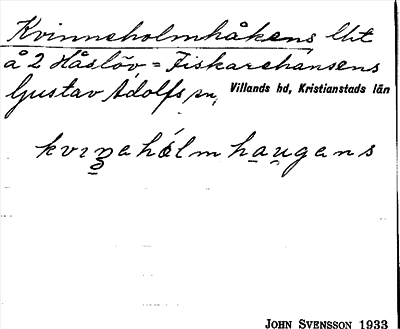 Kvinneholmhåkens, lht
å 2 Håslöv = Fiskarehansens
Gustav Adolfs sn, Villands hd, Kristianstads län
kvɪn̯ahólmha̯u̯gans
JOHN SVENSSON 1933